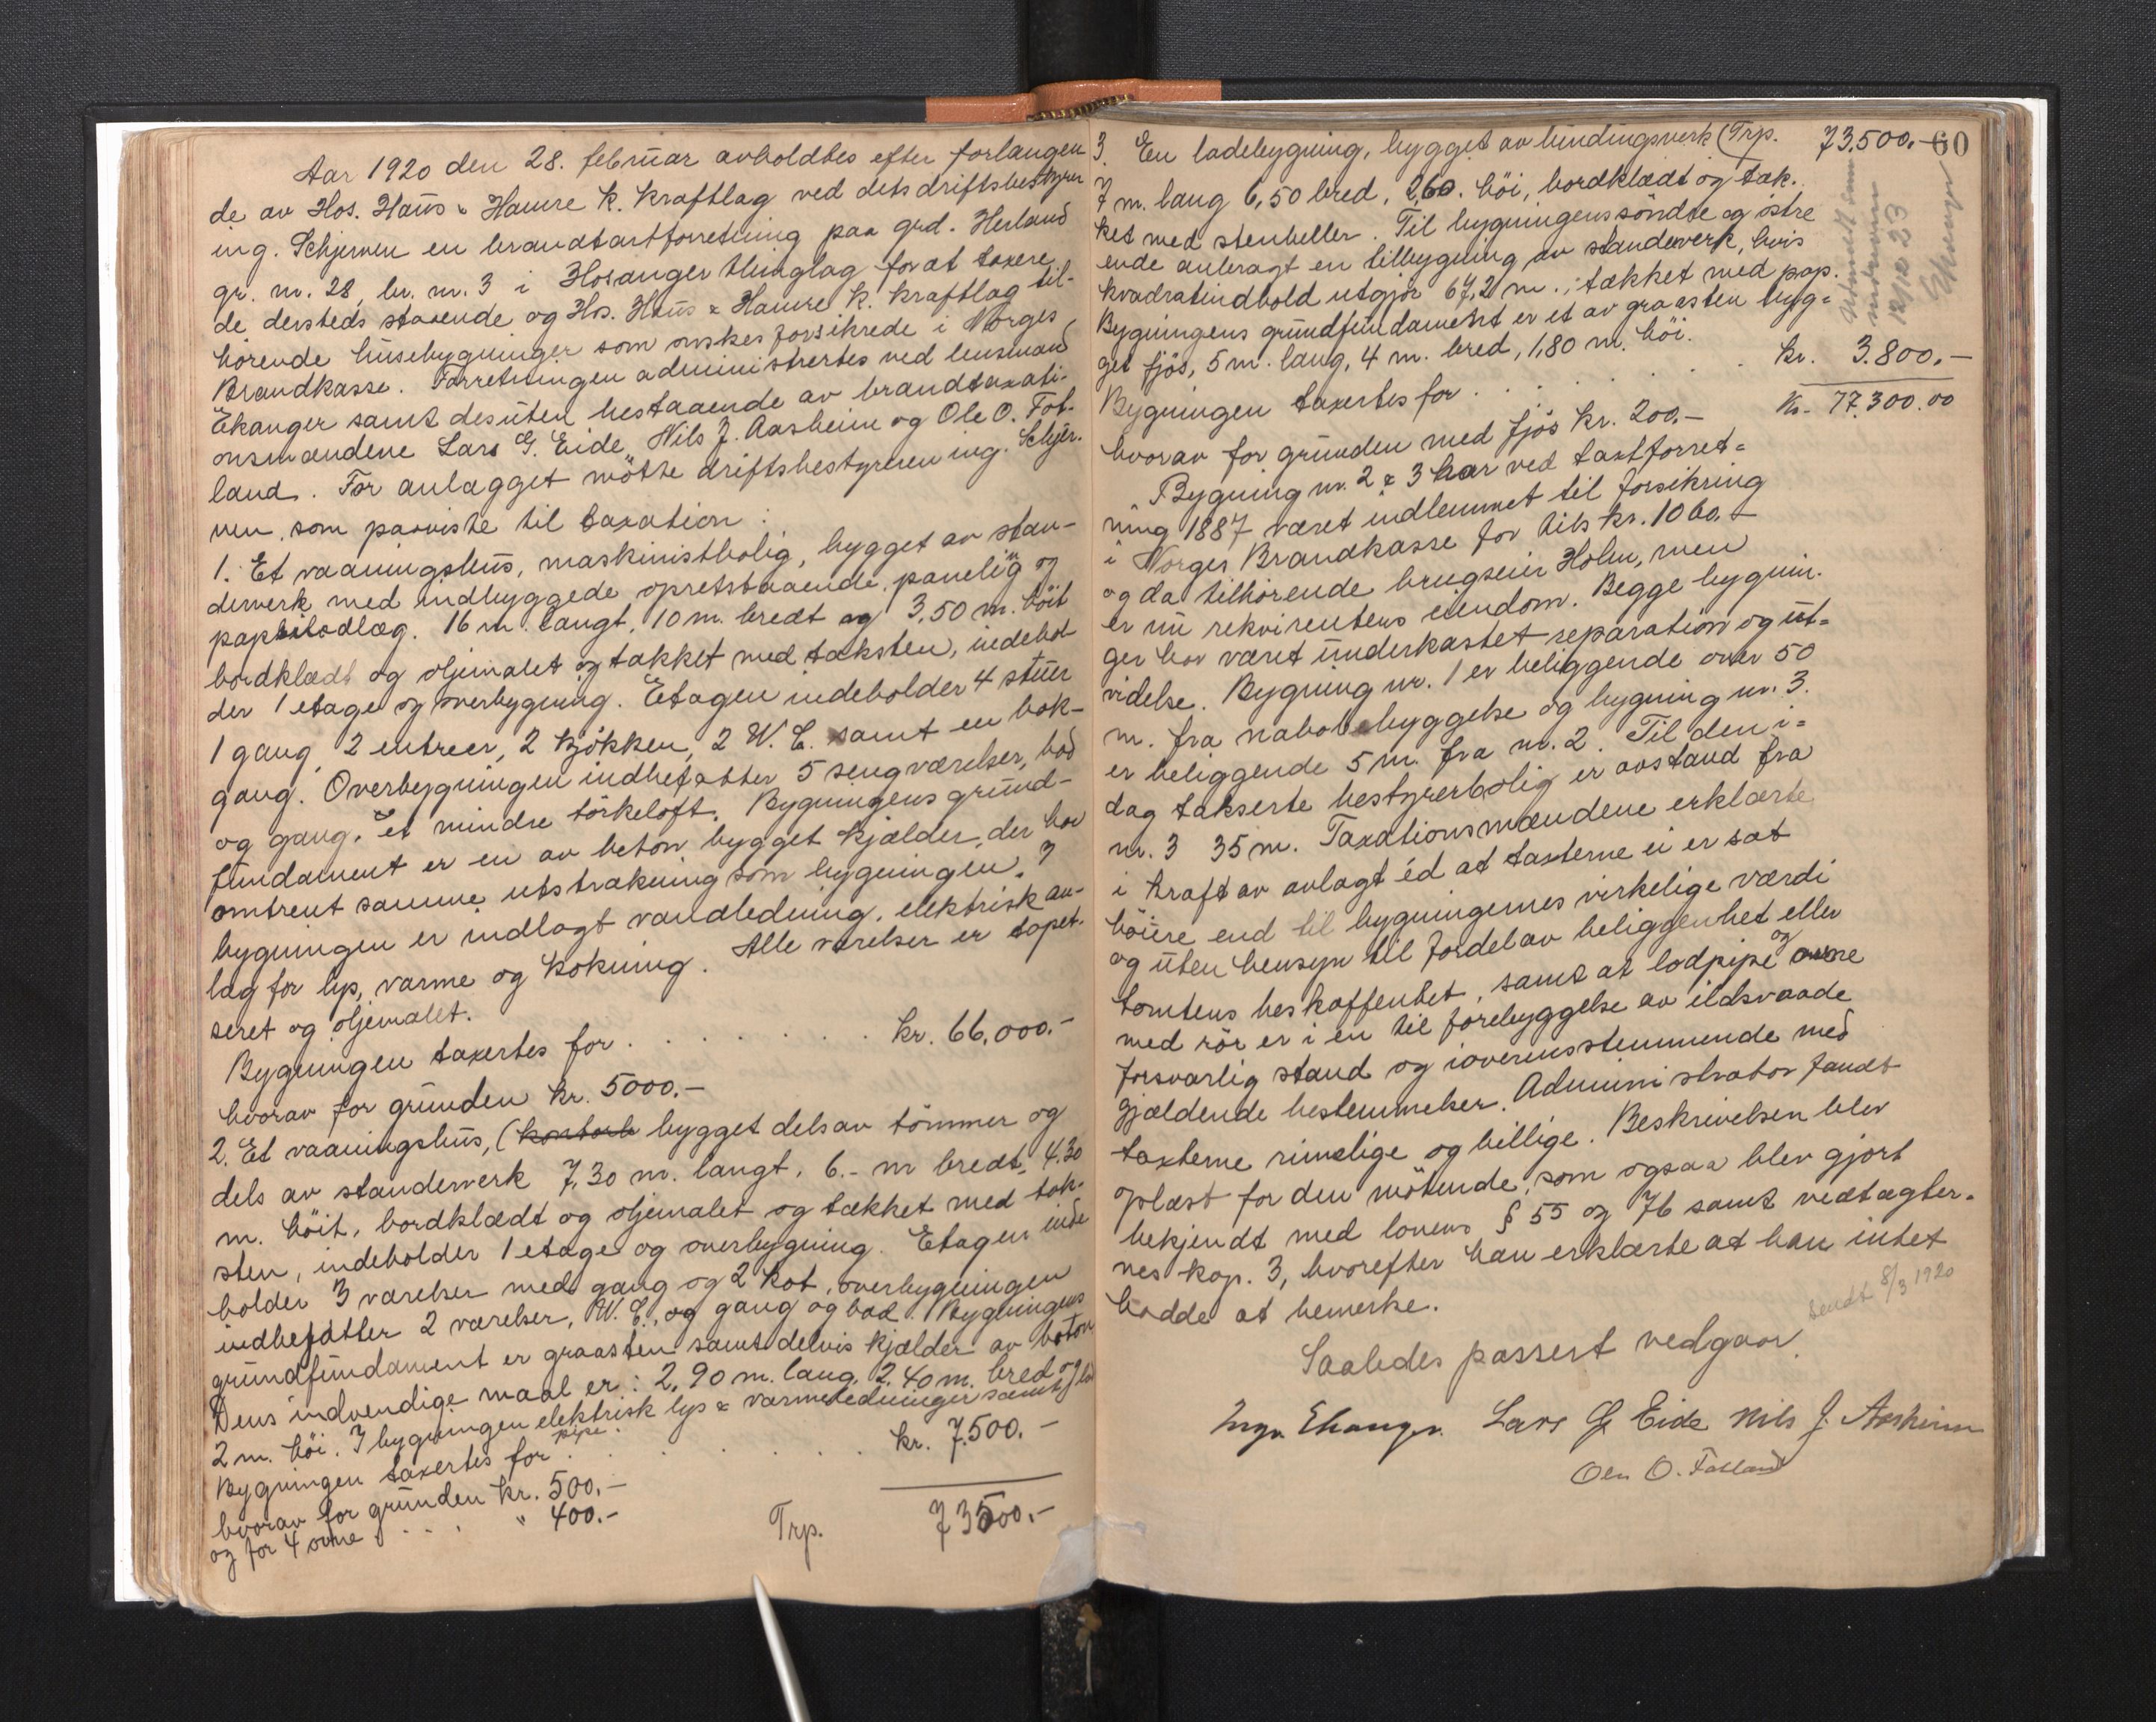 Aar 1920 den 28. februar avholdtes efter forlangen
de av Hos. Haus & Hamre K. Kraftlag ved dets driftsbestyrer
ing. Schjerven en brandtaxtforretning paa grd. Herland
gr. nr. 28, br. nr. 3 i Hosanger thinglag for at taxere
de dersteds staaende og Hos. Haus & Hamre K. Kraftlag til-
hörende husebygninger som önskes forsikrede i Norges
Brandkasse. Forretningen administrertes ved lensmand
Ekanger samt desuten bestaaende av brandtaxati-
onsmændene Lars G. Eide, Nils J. Aasheim og Ole O. Fot-
land. For anlægget mötte driftsbestyreren ing. Schjer-
ven, som paaviste til taxation:
1. Et vaaningshus, maskinistbolig, bygget av stan-
derverk med indbyggede opretstaaende panelig og
papbilodlæg. 16 m. langt, 10 m. bredt og 3,50 m. höit
bordklædt og oljemalet og tækket med taksten, indehol-
der 1 etage og overbygning. Etagen indeholder 4 stuer
1 gang, 2 entreer, 2 kjökken, 2 W. C. samt en bak-
gang. Overbygningen indbefatter 5 sengværelser, bod
og gang. et mindre törkeloft. Bygningens grund-
fundament er en av beton bygget kjælder, der har
omtrent samme utstrækning som bygningen. I
bygningen er indlagt vandledning, elektrisk an-
læg for lys, varme og kokning. Alle værelser er tapet-
seret og oljemalet.
Bygningen taxertes for . . . . . . . kr. 66,000.-
hvorav for grunden kr. 5000.-
2. Et vaaningshus, (kontorb bygget dels av tömmer og
dels av standerverk 7,30 m. langt, 6.- m bredt, 4.30
m. höit, bordklædt og oljemalet og tækket med tak-
sten, indeholder 1 etage og overbygning. Etagen inde
holder 3 værelser med gang og 2 kot, overbygningen
indbefatter 2 værelser, W. C., og gang og bad. Bygningens
grundfundament er graasten samt delvis kjælder av beton
Dens indvendige maal er: 2,90 m. lang, 2,40 m. bred og
2 m. höi. I bygningen elektrisk lys & varmeledninger samt
pipe.
Bygningen taxertes for . . . . . . kr. 7.500.-
hvorav for grunden kr. 500.-
og for 4 ovne . . . " 400.-
Trp. 73500.-
60
3. En ladebygning, bygget av bindingsverk (Trp. 73.500.-
7 m. lang 6,50 bred, 2,60. höi, bordklædt og tæk-
ket med stenheller. Til bygningens söndre og östre
ende anbragt en tilbygning av standerverk, hvis
kvadratindhold utgjör 67,2 m.; tækket med pap.
Bygningens grundfundament er et av graasten byg-
get fjös, 5 m. lang, 4 m. bred, 1,80 m. höi.
Bygningen taxertes for . . . . . . kr. 3.800.-
hvorav for grunden med fjös kr. 200.- Kr. 77.300.00
Bygning nr. 2 & 3 har ved taxtforret-
ning 1887 været indlemmet til forsikring
i Norges Brandkasse for tils kr. 1060.-
og da tilhörende brugseier Holm, men
er nu rekvirentens eiendom. Begge bygnin-
ger har været underkastet reparation og ut-
videlse. Bygning nr. 1 er beliggende over 50
m. fra nabobebyggelse og bygning nr. 3.
er beliggende 5 m. fra nr. 2. Til den i-
dag takserte bestyrerbolig er avstand fra
nr. 3 35 m. Taxationsmændene erklærte
i kraft av avlagt éd at taxterne ei er sat
höiere end til bygningernes virkelige værdi
og uten hensyn til fordel av beliggenhet eller
tomtens beskaffenhet, samt at lodpipe og ovne
med rör er i en til forebyggelse av ildsvaade
forsvarlig stand og i overensstemmende med
gjældende bestemmelser. Administrator fandt
taxterne rimelige og billige. Beskrivelsen blev
oplæst for den mötende, som ogsaa blev gjort
bekjendt med lovens § 55 og 76 samt vedtægter-
nes kap. 3, hvorefter han erklærte at han intet
hadde at bemerke.
sendt 8/3 1920
Saaledes passert vedgaar.
Ingv. Ekanger. Lars G Eide Nils J. Aasheim
Ole O. Fotland
12/12 23
Ekanger